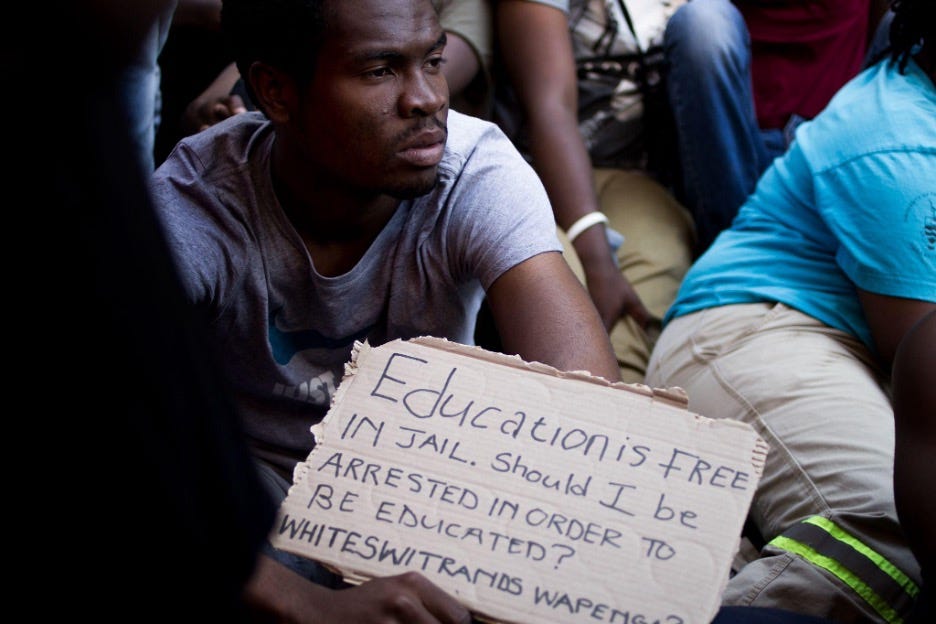 Education is FREE
IN JAIL. Should I be
ARRESTED IN ORDER TO
BE EDUCATED?
WHITESWITRANDS WAPENGA?